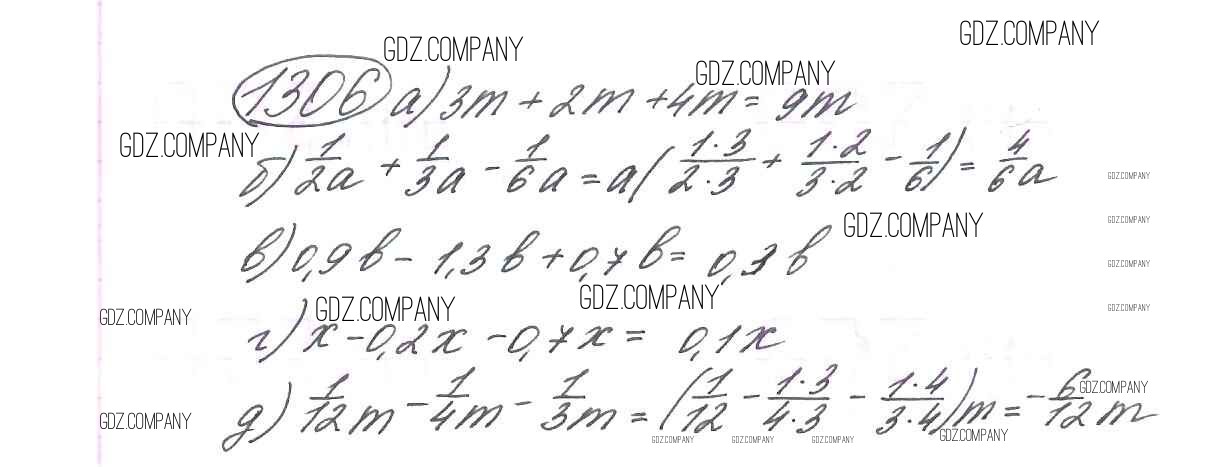 GDZ.COMPANY
GDZ.COMPANY
GDZ.COMPANY
1306 а) 3m + 2m + 4m = 9m
GDZ.COMPANY
б) 1/2 a + 1/3 a - 1/6 a = a ( 1·3/2·3 + 1·2/3·2 - 1/6 ) = 4/6 a
GDZ.COMPANY
GDZ.COMPANY
GDZ.COMPANY
в) 0,9b - 1,3b + 0,7b = 0,3b
GDZ.COMPANY
GDZ.COMPANY
GDZ.COMPANY
GDZ.COMPANY
GDZ.COMPANY
г) x - 0,2x - 0,7x = 0,1x
д) 1/12 m - 1/4 m - 1/3 m = ( 1/12 - 1·3/4·3 - 1·4/3·4 ) m = - 6/12 m
GDZ.COMPANY
GDZ.COMPANY
GDZ.COMPANY
GDZ.COMPANY
GDZ.COMPANY
GDZ.COMPANY